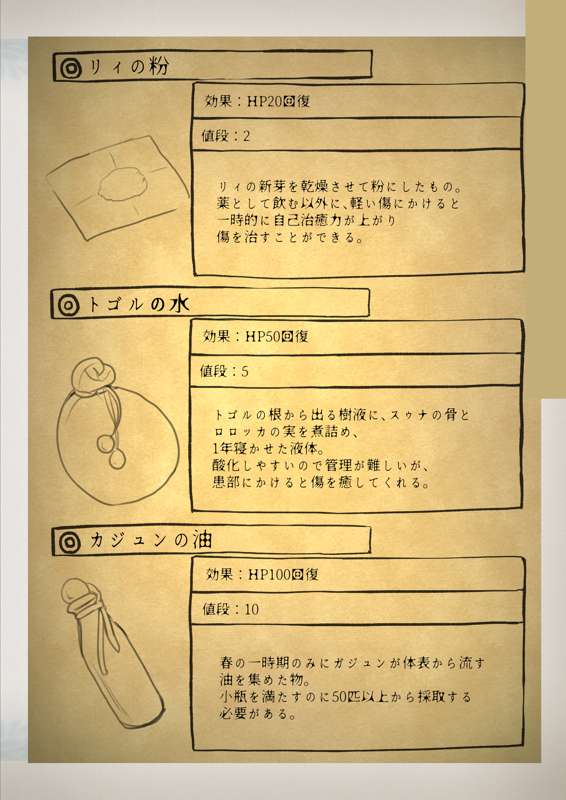 リィの粉
効果：HP20回復
値段：2
リィの新芽を乾燥させて粉にしたもの。
薬として飲む以外に、軽い傷にかけると
一時的に自己治癒力が上がり
傷を治すことができる。
トゴルの水
効果：HP50回復
値段：5
トゴルの根から出る樹液に、スゥナの骨と
ロロッカの実を煮詰め、
1年寝かせた液体。
酸化しやすいので管理が難しいが、
患部にかけると傷を癒してくれる。
カジュンの油
効果：HP100回復
値段：10
春の一時期のみにガジュンが体表から流す
油を集めた物。
小瓶を満たすのに50匹以上から採取する
必要がある。